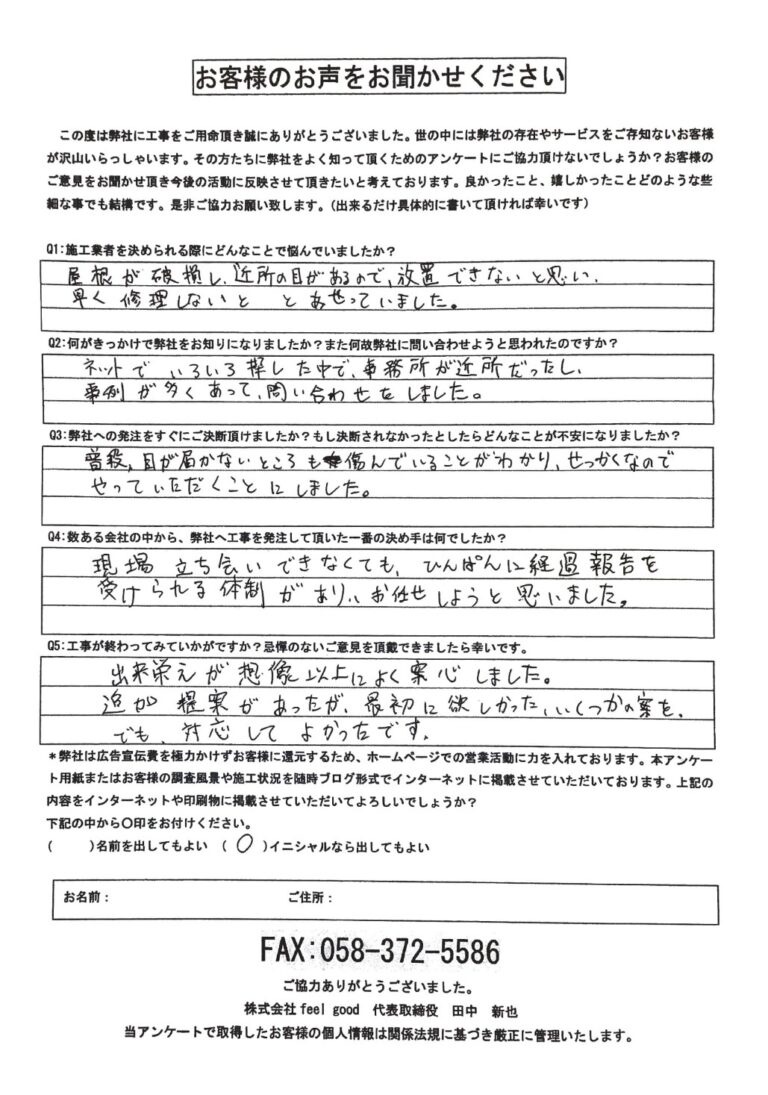 お客様のお声をお聞かせください
この度は弊社に工事をご用命頂き誠にありがとうございました。世の中には弊社の存在やサービスをご存知ないお客様
が沢山いらっしゃいます。その方たちに弊社をよく知って頂くためのアンケートにご協力頂けないでしょうか？お客様の
ご意見をお聞かせ頂き今後の活動に反映させて頂きたいと考えております。良かったこと、嬉しかったことどのような些
細な事でも結構です。是非ご協力お願い致します。（出来るだけ具体的に書いて頂ければ幸いです）
Q1：施工業者を決められる際にどんなことで悩んでいましたか？
屋根が破損し、近所の目があるので、放置できないと思い、
早く修理しないと とあせっていました。
Q2：何がきっかけで弊社をお知りになりましたか？また何故弊社に問い合わせようと思われたのですか？
ネットでいろいろ探した中で、事務所が近所だったし、
事例が多くあって、問い合わせをしました。
Q3：弊社への発注をすぐにご決断頂けましたか？もし決断されなかったとしたらどんなことが不安になりましたか？
普段、目が届かないところも傷んでいることがわかり、せっかくなので
やっていただくことにしました。
Q4：数ある会社の中から、弊社へ工事を発注して頂いた一番の決め手は何でしたか？
現場立ち会いできなくても、ひんぱんに経過報告を
受けられる体制があり、お任せしようと思いました。
Q5：工事が終わってみていかがですか？忌憚のないご意見を頂戴できましたら幸いです。
出来栄えが想像以上によく安心しました。
追加提案があったが、最初に欲しかった、いくつかの案を、
でも、対応してよかったです。
＊弊社は広告宣伝費を極力かけずお客様に還元するため、ホームページでの営業活動に力を入れております。本アンケー
ト用紙またはお客様の調査風景や施工状況を随時ブログ形式でインターネットに掲載させていただいております。上記の
内容をインターネットや印刷物に掲載させていただいてよろしいでしょうか？
下記の中から〇印をお付けください。
（　　）名前を出してもよい （ 〇 ）イニシャルなら出してもよい
お名前： ご住所：
FAX：058-372-5586
ご協力ありがとうございました。
株式会社feel good 代表取締役 田中 新也
当アンケートで取得したお客様の個人情報は関係法規に基づき厳正に管理いたします。